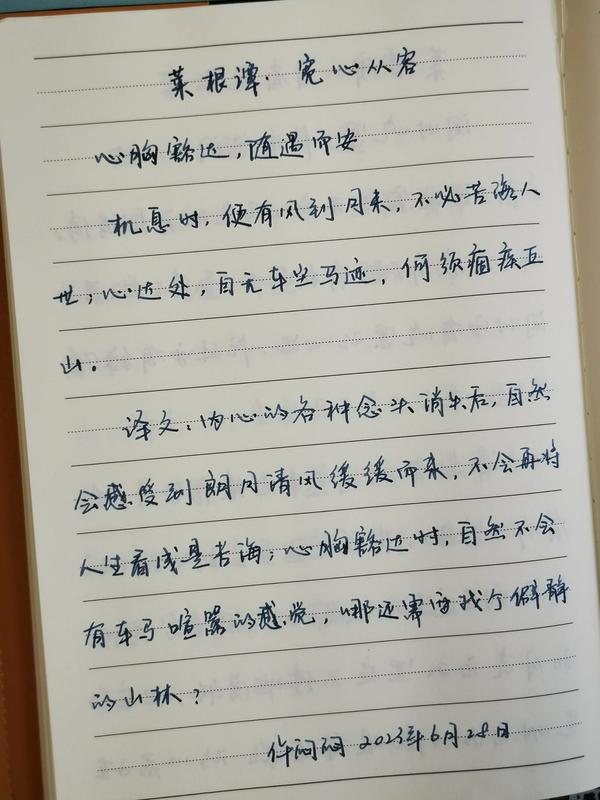 菜根谭·宽心从容
心胸豁达，随遇而安
机息时，便有风到月来，不必苦海人
世；心达处，自无车尘马迹，何须痼疾丘
山。
译文：内心的各种念头消失后，自然
会感受到朗月清风缓缓而来，不会再将
人生看成是苦海；心胸豁达时，自然不会
有车马喧嚣的感觉，哪还需要找个僻静
的山林？
2023年6月28日